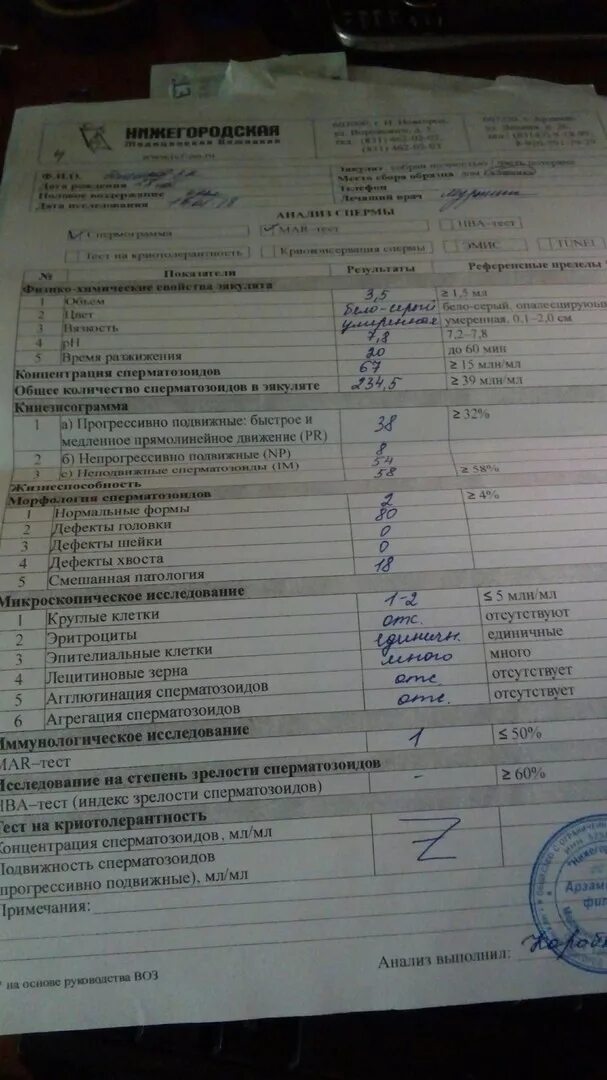 НИЖЕГОРОДСКАЯ
Медицинская Компания
Ф.И.О.
Дата рождения
Половое воздержание
Дата исследования
Эякулят собран полностью
Место сбора образца
Телефон
Лечащий врач
АНАЛИЗ СПЕРМЫ
Спермограмма MAR–тест НВА–тест
Тест на криотолерантность Криоконсервация спермы ЭМИС TUNEL
№ Показатели Результаты Референсные пределы
Физико-химические свойства эякулята
1 Объем 3,5 ≥ 1,5 мл
2 Цвет бело-серый бело-серый, опалесцирующ
3 Вязкость умеренная умеренная, 0,1–2,0 см
4 pH 7,8 7,2–7,8
5 Время разжижения 20 до 60 мин
Концентрация сперматозоидов 67 ≥ 15 млн/мл
Общее количество сперматозоидов в эякуляте 234,5 ≥ 39 млн/мл
Кинезисограмма
1 а) Прогрессивно подвижные: быстрое и
медленное прямолинейное движение (PR) 38 ≥ 32%
2 б) Непрогрессивно подвижные (NP) 8
3 с) Неподвижные сперматозоиды (IM) 54
Жизнеспособность 58 ≥ 58%
Морфология сперматозоидов
1 Нормальные формы 2 ≥ 4%
2 Дефекты головки 80
3 Дефекты шейки 0
4 Дефекты хвоста 0
5 Смешанная патология 18
Микроскопическое исследование
1 Круглые клетки 1-2 ≤ 5 млн/мл
2 Эритроциты отс. отсутствуют
3 Эпителиальные клетки единичн. единичные
4 Лецитиновые зерна много много
5 Агглютинация сперматозоидов отс отсутствует
6 Агрегация сперматозоидов отс. отсутствует
Иммунологическое исследование
MAR–тест 1 ≤ 50%
Исследование на степень зрелости сперматозоидов
НВА–тест (индекс зрелости сперматозоидов) - ≥ 60%
Тест на криотолерантность
Концентрация сперматозоидов, мл/мл
Подвижность сперматозоидов
(прогрессивно подвижные), мл/мл
Примечания:
Анализ выполнил:
* на основе руководства ВОЗ